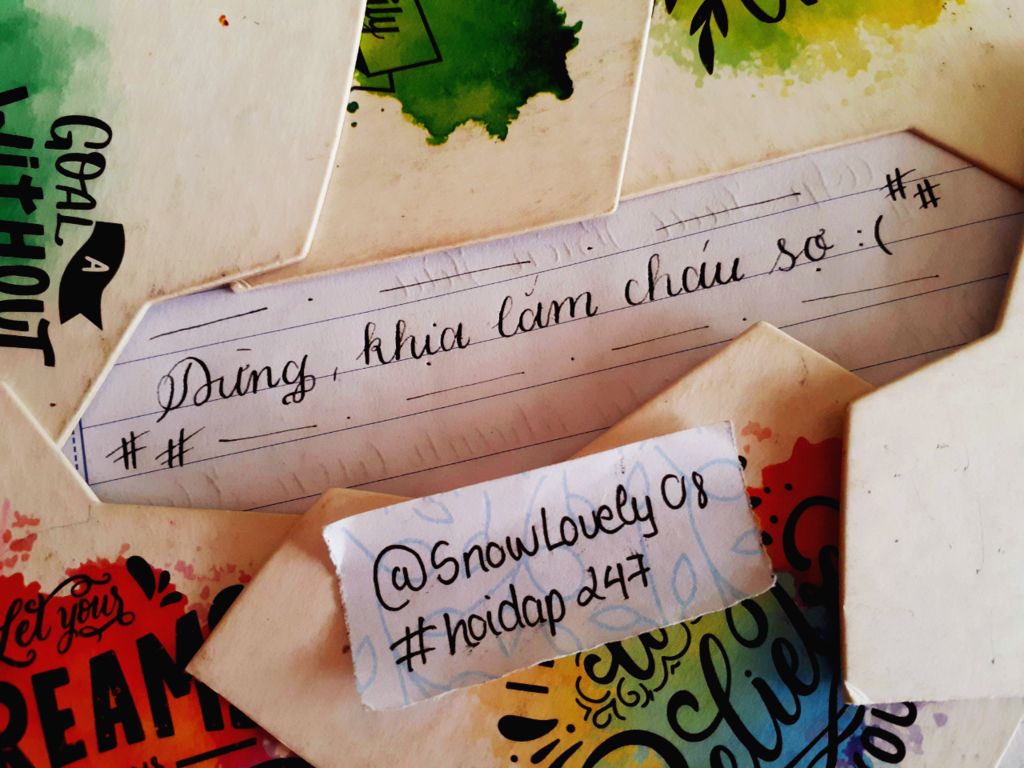 ily
GOAL
A
WITHOUT
##
Đừng, khịa lắm cháu sợ :(
##
@SnowLovely08
#hoidap247
Let your
DREAMS